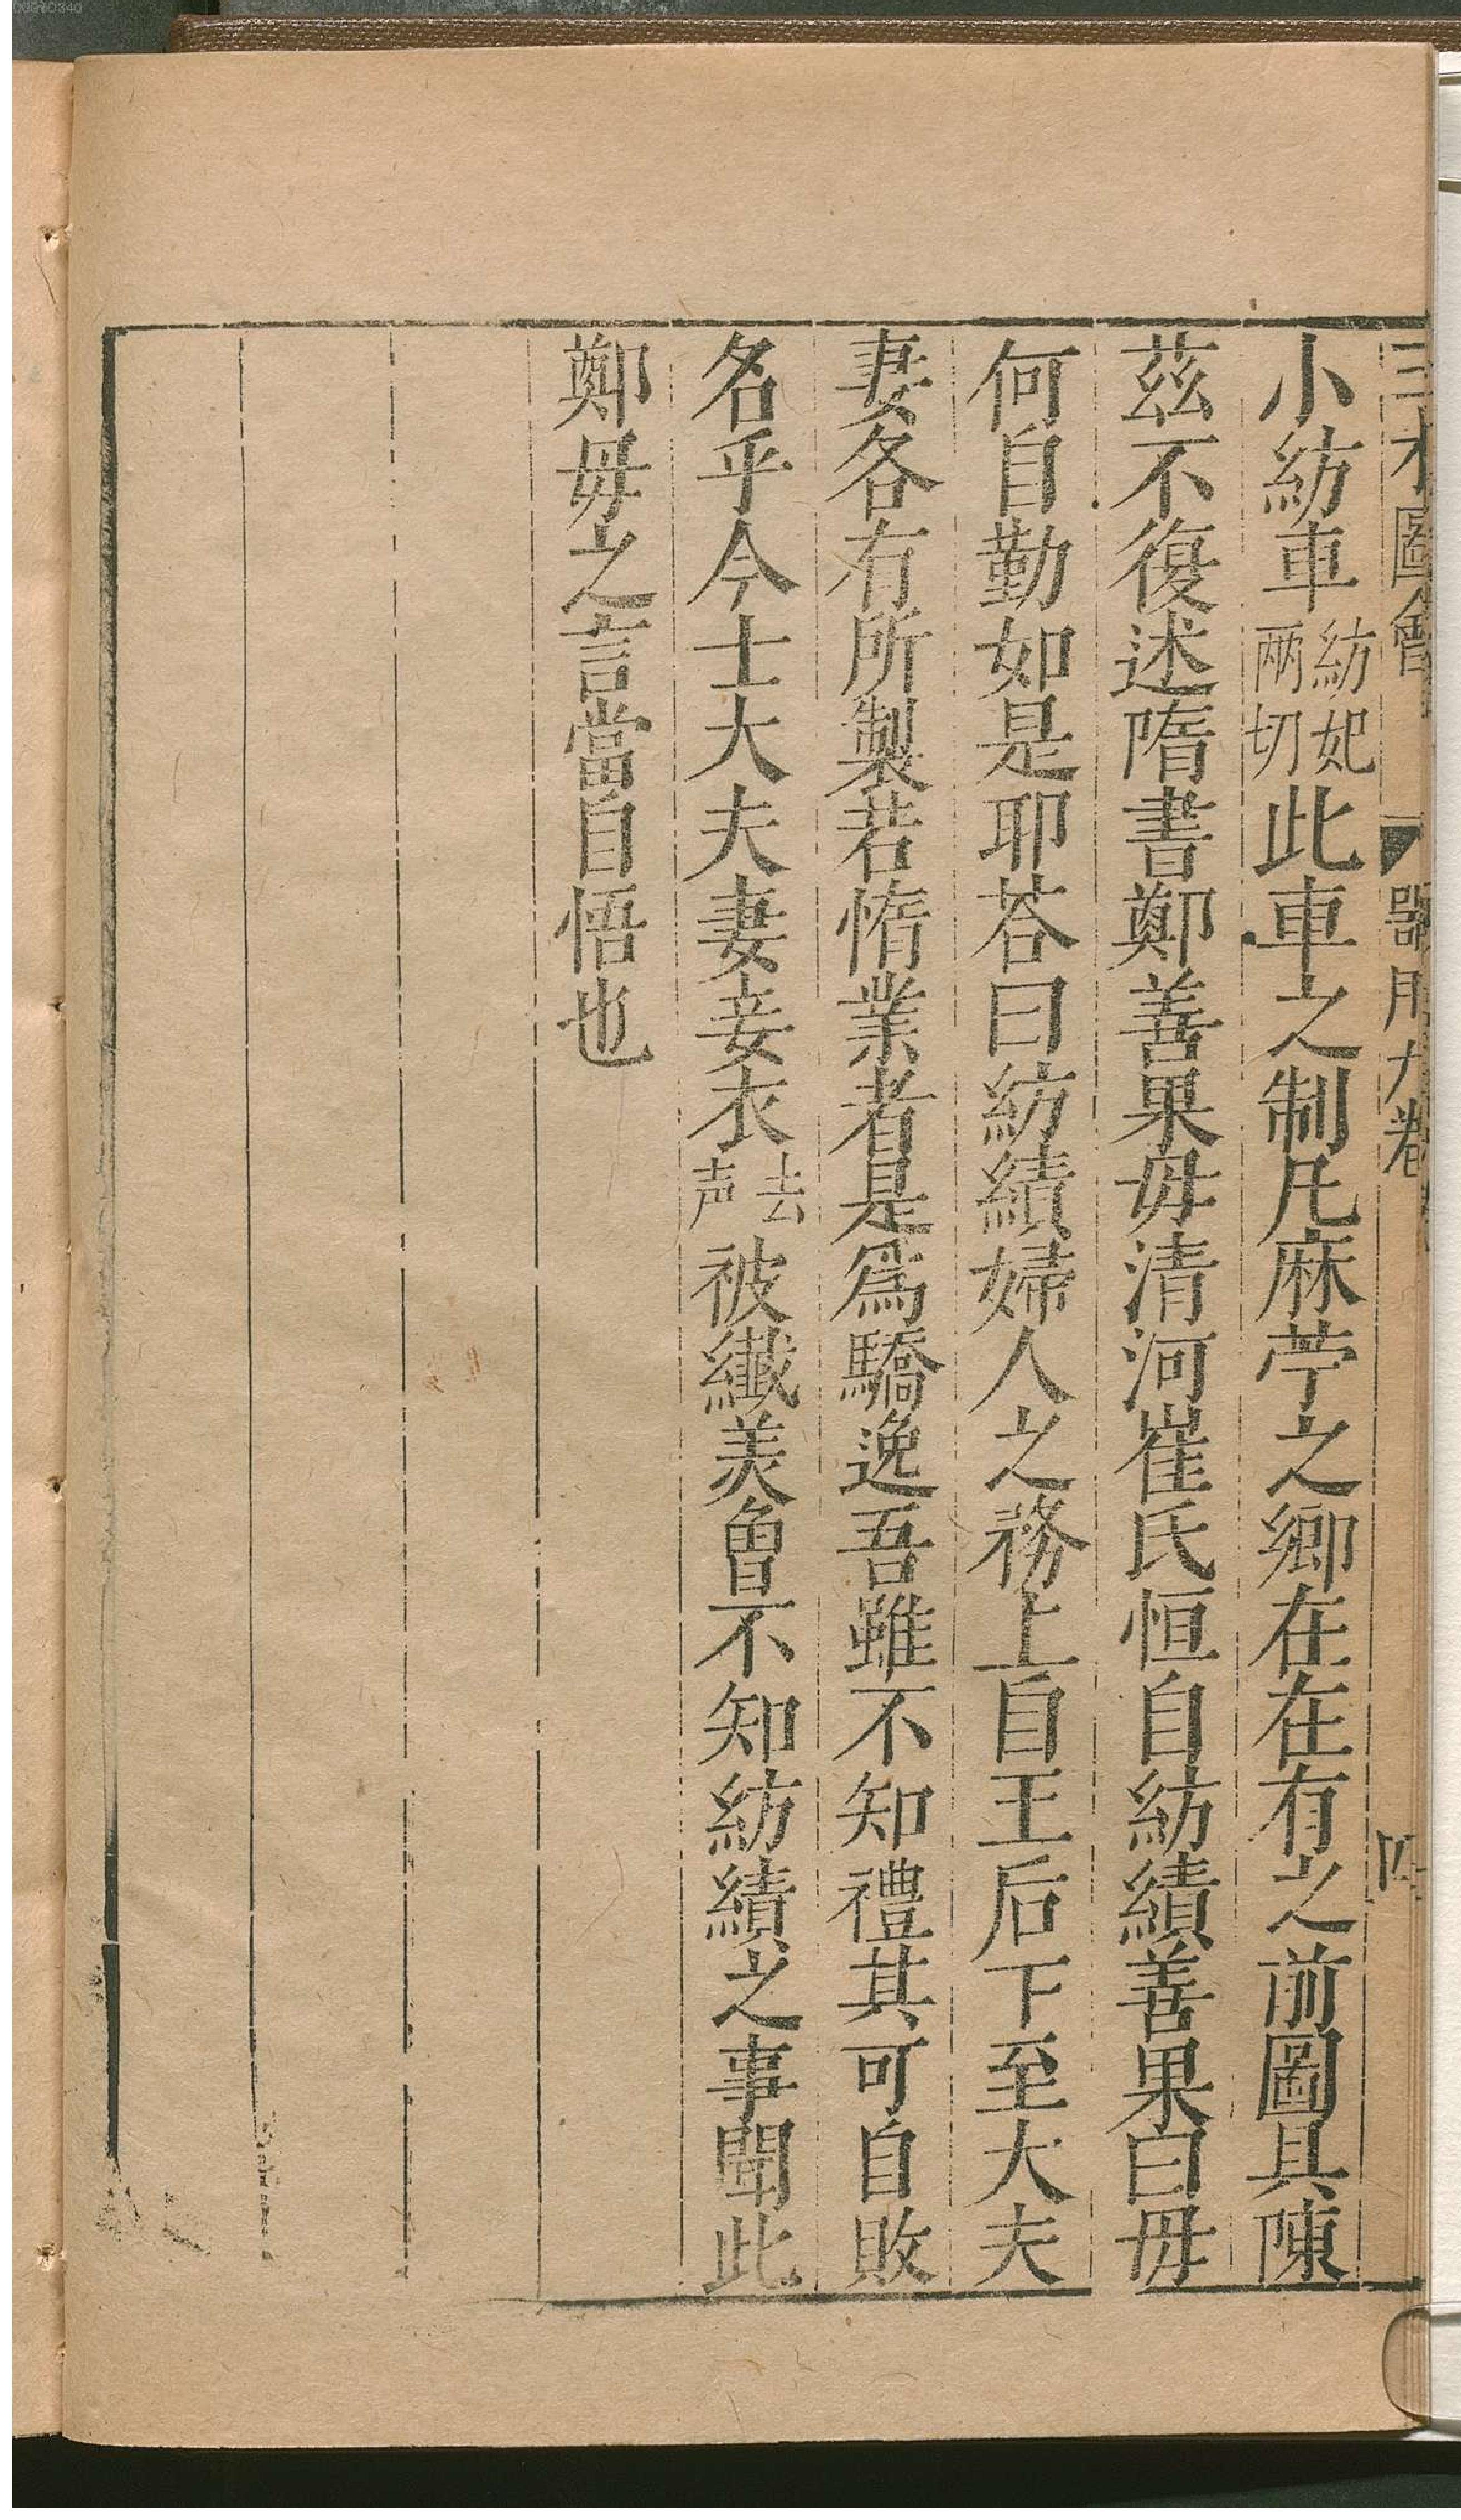 小紡車紡妃兩切此車之制凡麻苧之鄉在在有之前圖具陳
茲不復述隋書鄭善果毋清河崔氏恒自紡績善果曰毋
何自勤如是耶荅曰紡績婦人之務上自王后下至大夫
妻各有所製若惰業者是爲驕逸吾雖不知禮其可自敗
名乎今士大夫妻妾衣去声被纖美曾不知紡績之事聞此
鄭毋之言當自悟也